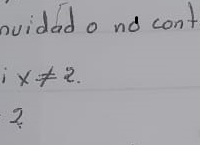 nuidad o no cont
i x ≠ 2.
2